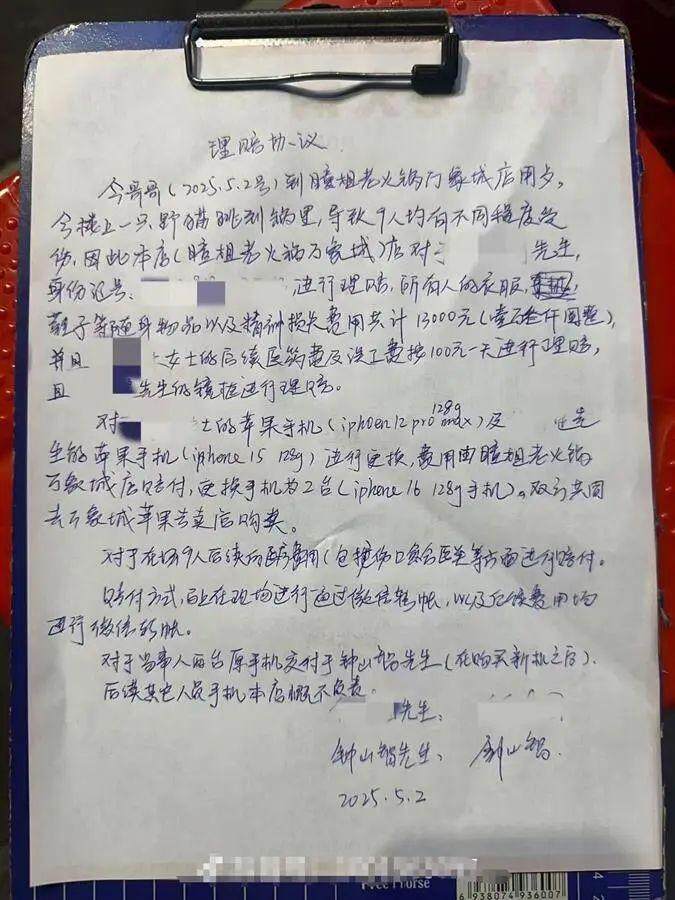 理赔协议
今哥哥(2025.5.2号)到瞳姐老火锅万象城店用歺,
今楼上一只野猫跳到锅里,导致9人均有不同程度受
伤,因此本店(瞳姐老火锅万象城)店对于 先生,
身份证号: 进行理赔,所有人的衣服,
鞋子等随身物品以及精神损失费用共计13000元(壹万叁仟圆整),
并且 女士的后续医药费及误工费按100元一天进行理赔,
且 先生的镜框进行理赔。
对 士的苹果手机(iphoen12pro max 128g)及 先
生的苹果手机(iphone 15 128g)进行更换,费用由瞳姐老火锅
万象城店赔付,更换手机为2台(iphone 16 128g手机)。双方共同
去万象城苹果专卖店购买。
对于在场9人后续医费用(包括伤口愈合医美等方面进行赔付。
赔付方式,店在现场进行通过微信转帐,以及后续费用均
进行微信转帐。
对于当事人两台原手机交付于钟山智先生(在购买新机之后).
后续其它人员手机本店概不负责。
先生:
钟山智先生: 钟山智.
2025.5.2
Free Horse
6 938074 936007